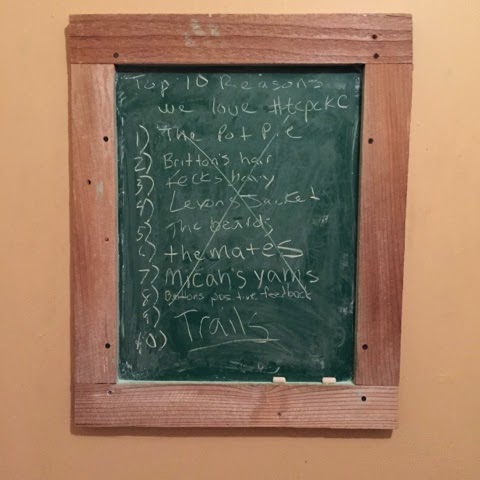 Top 10 Reasons
we love #tcpcKC
1) The Pot Pie
2) Britton's hair
3)
4) Levon's Jacket
5) The beards
6) the mates
7) Micah's yams
8) positive feedback
9) Trails
10)